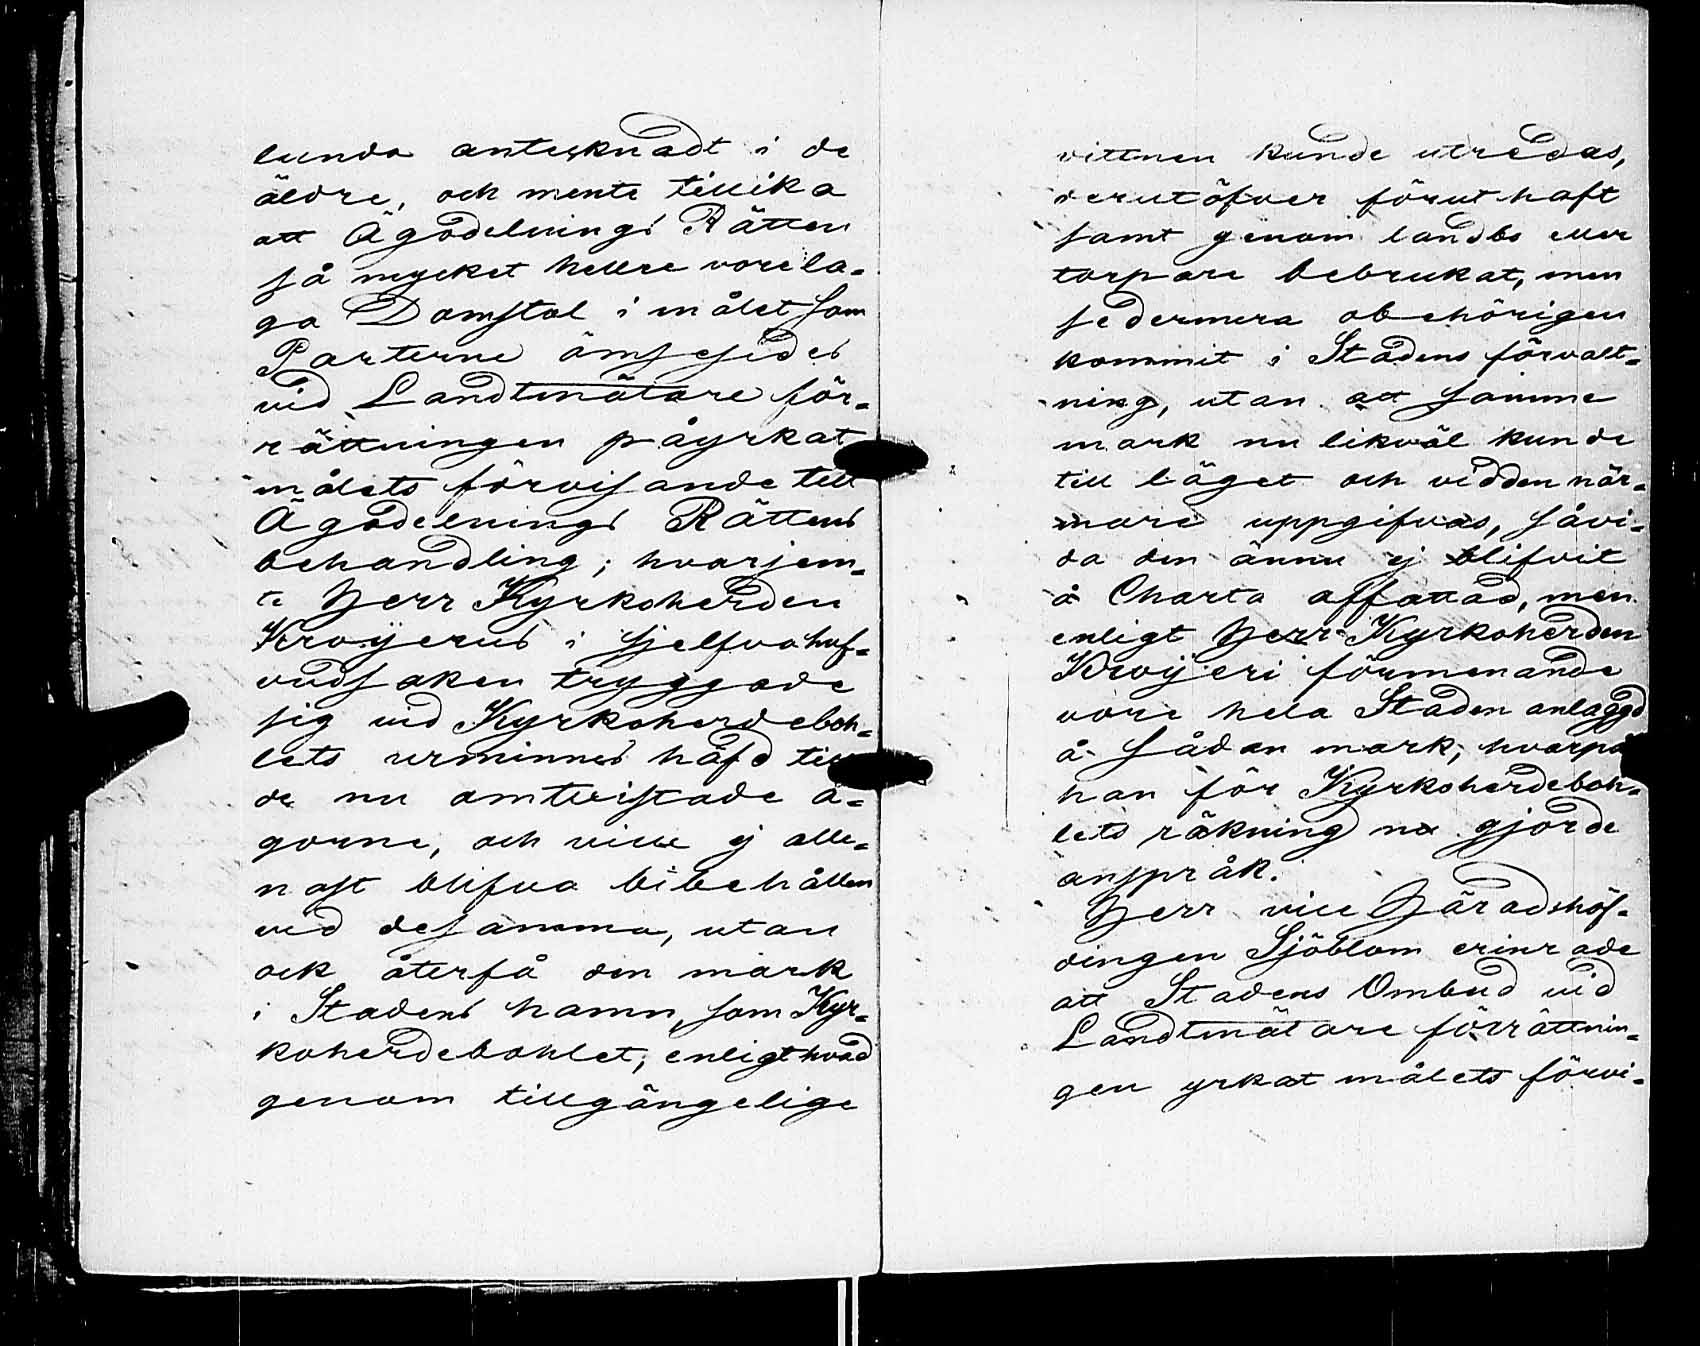 lunda antecknadt i de
äldre, och mente tillika
att Ägodelnings Rätten
så mycket hellre vore la-
ga Domstol i målet som
Parterne ömsesides
vid Landtmätare för-
rättningen påyrkat
målets förvisande till
Ägodelnings Rättens
behandling; hvarjem-
te Herr Kyrkoherden
Kroijerus i sjelfva huf-
vudsaken tryggade
sig vid Kyrkoherdeboh-
lets urminnes häfd till
de nu omtvistade ä-
gorne, och ville ej alle-
nast blifva bibehållen
vid desamma, utan
ock återfå den mark
i Stadens hamn, som Kyr-
koherdebohlet, enligt hvad
genom tillgängelige
vittnen kunde utredas,
derutöfver förut haft
samt genom landbo eller
torpare bebrukat, men
sedermera obehörigen
kommit i Stadens förvalt-
ning, utan att samme
mark nu likväl kunde
till läget och vidden när-
mare uppgifvas, såvi-
da den ännu ej blifvit
å Charta affattad, men
enligt Herr Kyrkoherden
Kroijeri förmenande
vore hela Staden anlaggd
å sådan mark, hvarpå
han för Kyrkoherdeboh-
lets räkning nu gjorde
anspråk.
Herr vice Häradshöf-
dingen Sjöblom erinrade
att Stadens Ombud vid
Landtmätare förrättnin-
gen yrkat målets förvi-